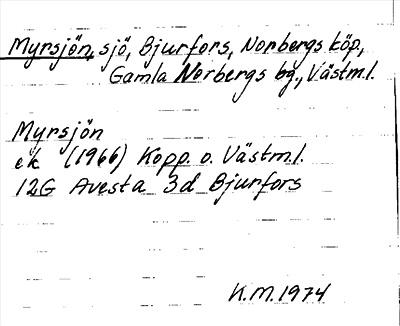 Myrsjön, sjö, Bjurfors, Norbergs köp,
Gamla Norbergs bg., Västm.l.
Myrsjön
ek (1966) Kopp. o. Västm.l.
12G Avesta 3d Bjurfors
K.M. 1974